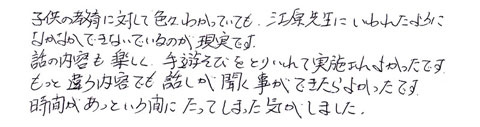 子供の教育に対して色々わかっていても、江原先生にいわれたように
なかなかできないでいるのが現実です。
話の内容も楽しく、手遊そびをとりいれて実施されよかったです。
もっと違う内容でも話しが聞く事ができたらよかったです。
時間があっという間にたってしまった気がしました。